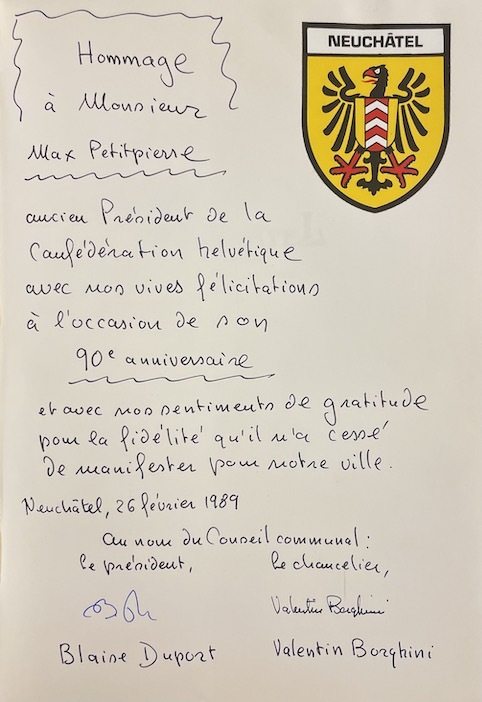 NEUCHÂTEL
Hommage
à Monsieur
Max Petitpierre
ancien Président de la
Confédération helvétique
avec nos vives félicitations
à l'occasion de son
90e anniversaire
et avec nos sentiments de gratitude
pour la fidélité qu'il n'a cessé
de manifester pour notre ville.
Neuchâtel, 26 février 1989
au nom du Conseil communal:
le président,
le chancelier,
Valentin Borghini
Blaise Duport
Valentin Borghini